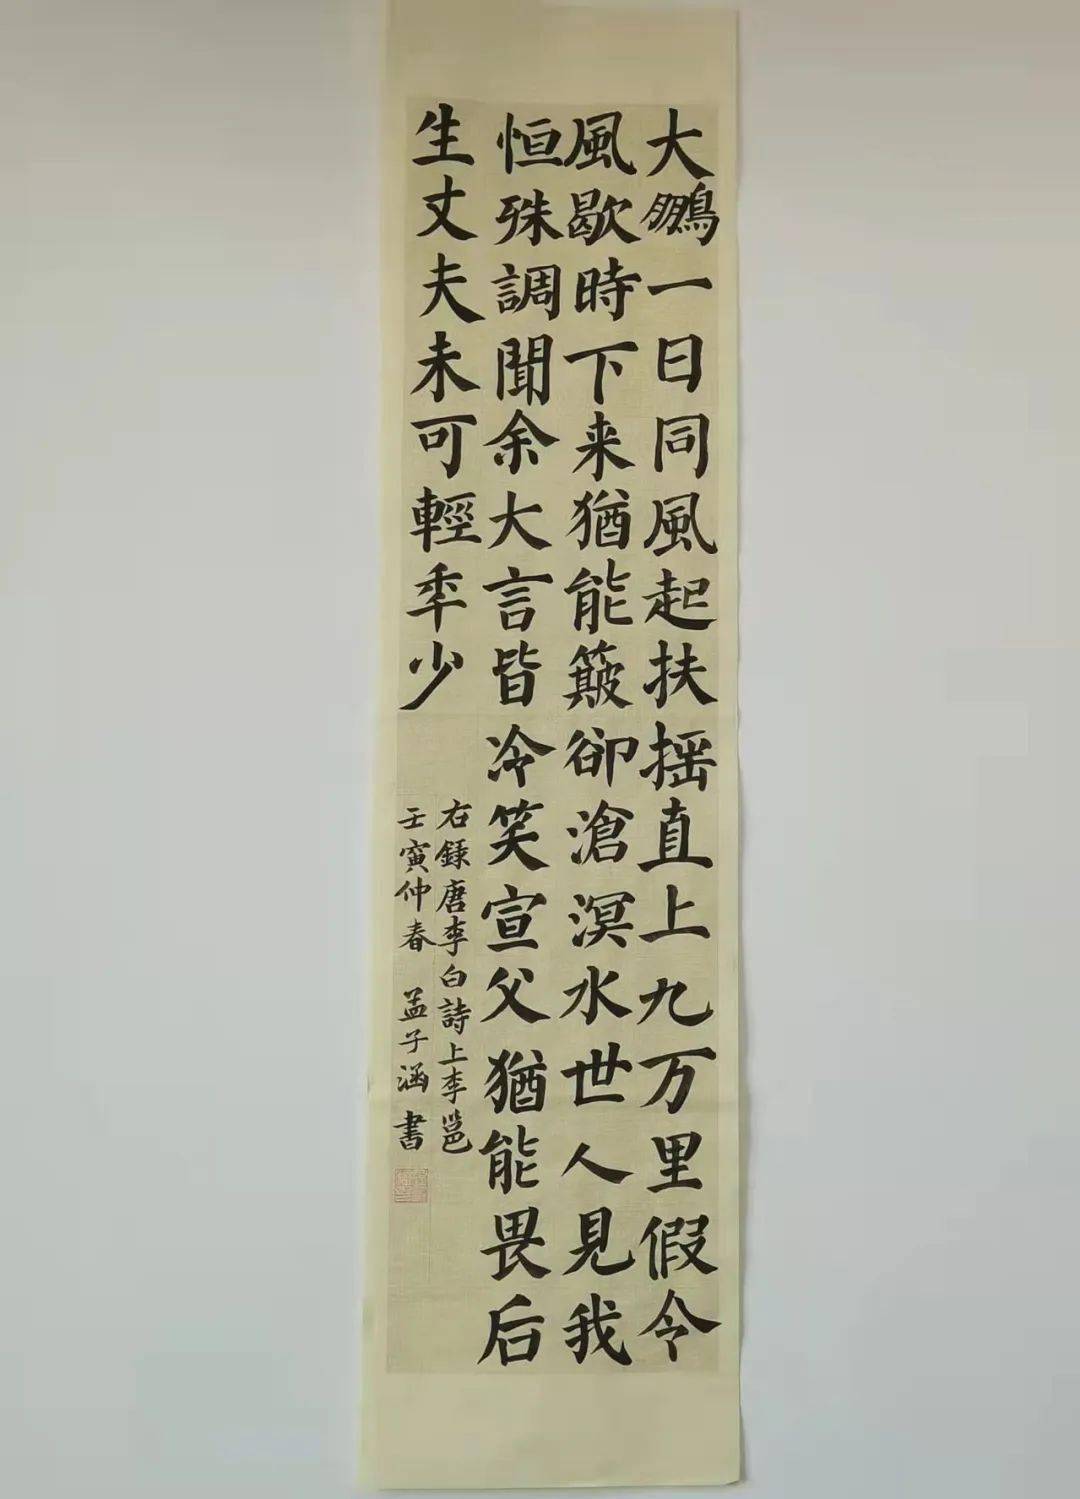 大鵬一日同風起扶摇直上九万里假令
風歇時下来猶能簸卻滄溟水世人見我
恒殊調聞余大言皆冷笑宣父猶能畏后
生丈夫未可輕年少
右録唐李白詩上李邕
壬寅仲春 孟子涵書